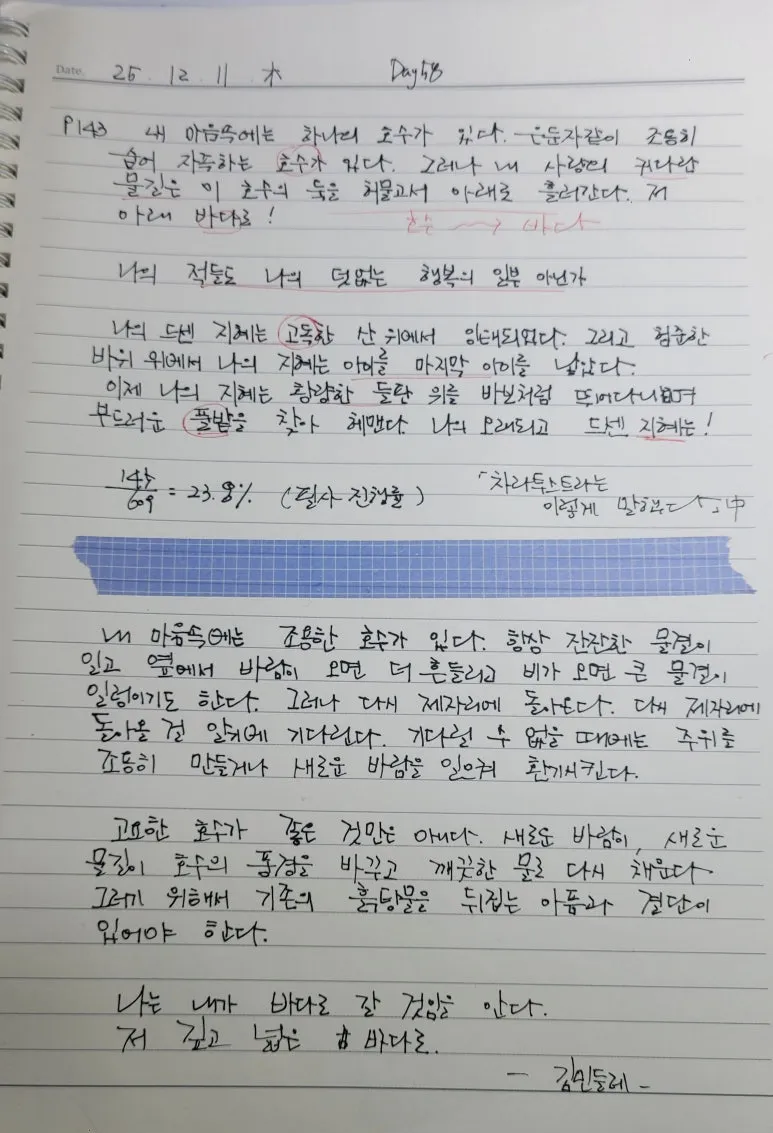 Date. 25. 12. 11 木 Day58
P143 내 마음속에는 하나의 호수가 있다. 은둔자같이 조용히
숨어 자족하는 호수가 있다. 그러나 내 사랑의 커다란
물길은 이 호수의 둑을 허물고서 아래로 흘러간다. 저
아래 바다로!
호수 → 바다
나의 적들도 나의 덧없는 행복의 일부 아닌가
나의 드센 지혜는 고독한 산 위에서 잉태되었다. 그리고 험준한
바위 위에서 나의 지혜는 아이를 마지막 아이를 낳았다.
이제 나의 지혜는 황량한 들판 위를 바보처럼 뛰어다니며
부드러운 풀밭을 찾아 헤맨다. 나의 오래되고 드센 지혜는!
145/609 = 23.8% (필사 진행률)
「차라투스트라는
이렇게 말했다」中
내 마음속에는 조용한 호수가 있다. 항상 잔잔한 물결이
일고 옆에서 바람이 오면 더 흔들리고 비가 오면 큰 물결이
일렁이기도 한다. 그러나 다시 제자리에 돌아온다. 다시 제자리에
돌아올 걸 알기에 기다린다. 기다릴 수 없을 때에는 주위를
조용히 만들거나 새로운 바람을 일으켜 환기시킨다.
고요한 호수가 좋은 것만은 아니다. 새로운 바람이, 새로운
물길이 호수의 풍경을 바꾸고 깨끗한 물로 다시 채운다.
그러기 위해서 기존의 흙탕물을 뒤집는 아픔과 결단이
있어야 한다.
나는 내가 바다로 갈 것임을 안다.
저 깊고 넓은 바다로.
- 김민들레 -